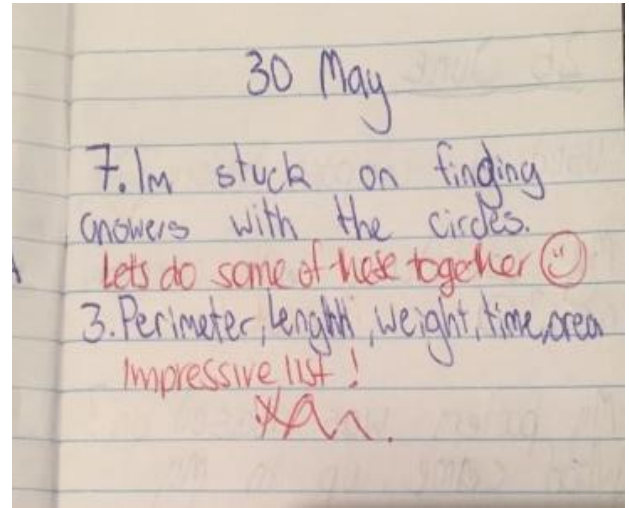 30 May
7. Im stuck on finding
answers with the circles.
Lets do some of these together
3. Perimeter, lenghth, weight, time, area
Impressive list !